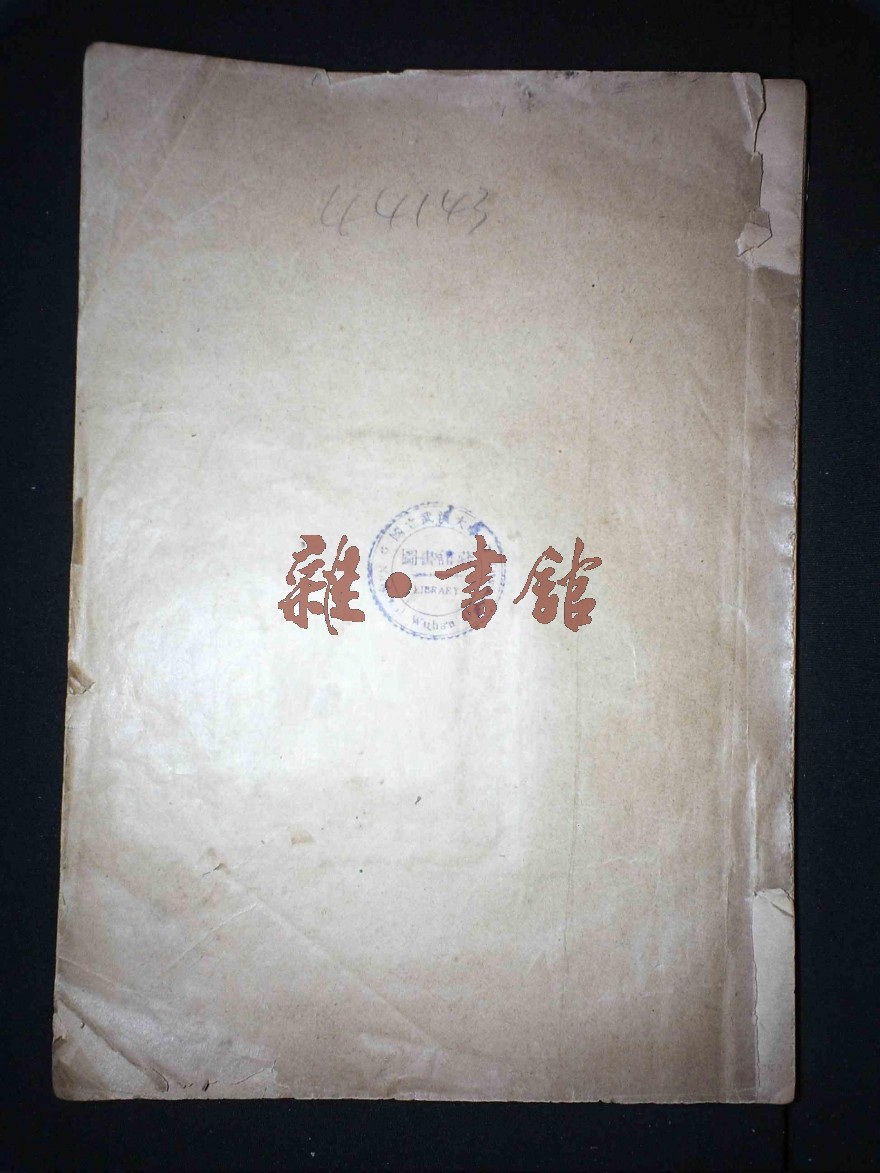 44143
國立武漢大
圖書館
LIBRARY
雜·書館